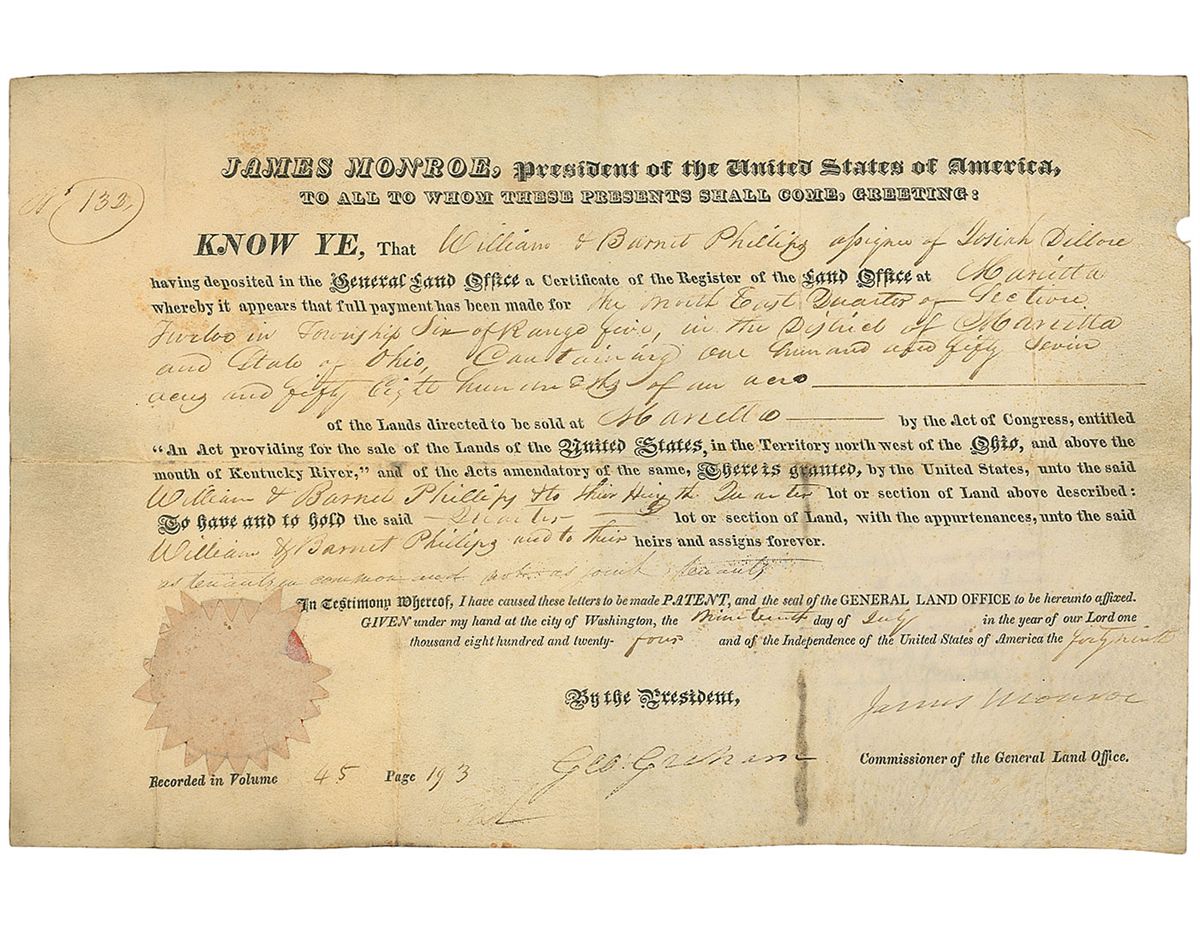 JAMES MONROE, President of the United States of America,
TO ALL TO WHOM THESE PRESENTS SHALL COME, GREETING:
No 132
KNOW YE, That William & Barnet Phillips assignee of Josiah Dillon
having deposited in the General Land Office a Certificate of the Register of the Land Office at Marietta
whereby it appears that full payment has been made for the North East Quarter of Section
Twelve in Township Six of Range five, in the District of Marietta
and State of Ohio, Containing one hundred and fifty Seven
acres and fifty Eight hundredths of an acre
of the Lands directed to be sold at Marietta by the Act of Congress, entitled
"An Act providing for the sale of the Lands of the United States, in the Territory north west of the Ohio, and above the
mouth of Kentucky River," and of the Acts amendatory of the same, There is granted, by the United States, unto the said
William & Barnet Phillips & to their Heirs the Quarter lot or section of Land above described:
To have and to hold the said Quarter lot or section of Land, with the appurtenances, unto the said
William & Barnet Phillips and to their heirs and assigns forever.
as tenants in common and not as joint tenants
In Testimony Whereof, I have caused these letters to be made PATENT, and the seal of the GENERAL LAND OFFICE to be hereunto affixed.
GIVEN under my hand at the city of Washington, the day of in the year of our Lord one
thousand eight hundred and twenty-four and of the Independence of the United States of America the forty ninth
By the President, James Monroe
Geo: Graham Commissioner of the General Land Office.
Recorded in Volume 45 Page 193